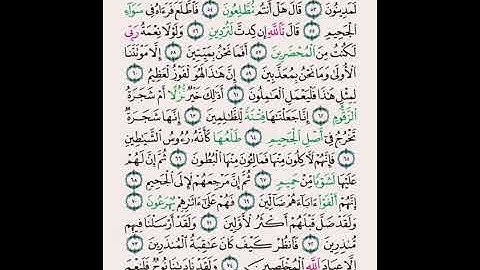 لَمَدِينُونَ ٥٣ قَالَ هَلْ أَنتُم مُّطَّلِعُونَ ٥٤ فَاطَّلَعَ فَرَءَاهُ فِى سَوَآءِ
الْجَحِيمِ ٥٥ قَالَ تَاللَّهِ إِن كِدتَّ لَتُرْدِينِ ٥٦ وَلَوْلَا نِعْمَةُ رَبِّى
لَكُنتُ مِنَ الْمُحْضَرِينَ ٥٧ أَفَمَا نَحْنُ بِمَيِّتِينَ ٥٨ إِلَّا مَوْتَتَنَا
الْأُولَىٰ وَمَا نَحْنُ بِمُعَذَّبِينَ ٥٩ إِنَّ هَٰذَا لَهُوَ الْفَوْزُ الْعَظِيمُ ٦٠
لِمِثْلِ هَٰذَا فَلْيَعْمَلِ الْعَامِلُونَ ٦١ أَذَٰلِكَ خَيْرٌ نُّزُلًا أَمْ شَجَرَةُ
الزَّقُّومِ ٦٢ إِنَّا جَعَلْنَاهَا فِتْنَةً لِّلظَّالِمِينَ ٦٣ إِنَّهَا شَجَرَةٌ
تَخْرُجُ فِى أَصْلِ الْجَحِيمِ ٦٤ طَلْعُهَا كَأَنَّهُ رُءُوسُ الشَّيَاطِينِ ٦٥
فَإِنَّهُمْ لَآكِلُونَ مِنْهَا فَمَالِئُونَ مِنْهَا الْبُطُونَ ٦٦ ثُمَّ إِنَّ لَهُمْ
عَلَيْهَا لَشَوْبًا مِّنْ حَمِيمٍ ٦٧ ثُمَّ إِنَّ مَرْجِعَهُمْ لَإِلَى الْجَحِيمِ ٦٨
إِنَّهُمْ أَلْفَوْا ءَابَآءَهُمْ ضَآلِّينَ ٦٩ فَهُمْ عَلَىٰ ءَاثَارِهِمْ يُهْرَعُونَ ٧٠
وَلَقَدْ ضَلَّ قَبْلَهُمْ أَكْثَرُ الْأَوَّلِينَ ٧١ وَلَقَدْ أَرْسَلْنَا فِيهِم
مُّنذِرِينَ ٧٢ فَانظُرْ كَيْفَ كَانَ عَاقِبَةُ الْمُنذَرِينَ ٧٣
إِلَّا عِبَادَ اللَّهِ الْمُخْلَصِينَ ٧٤ وَلَقَدْ نَادَىٰنَا نُوحٌ فَلَنِعْمَ